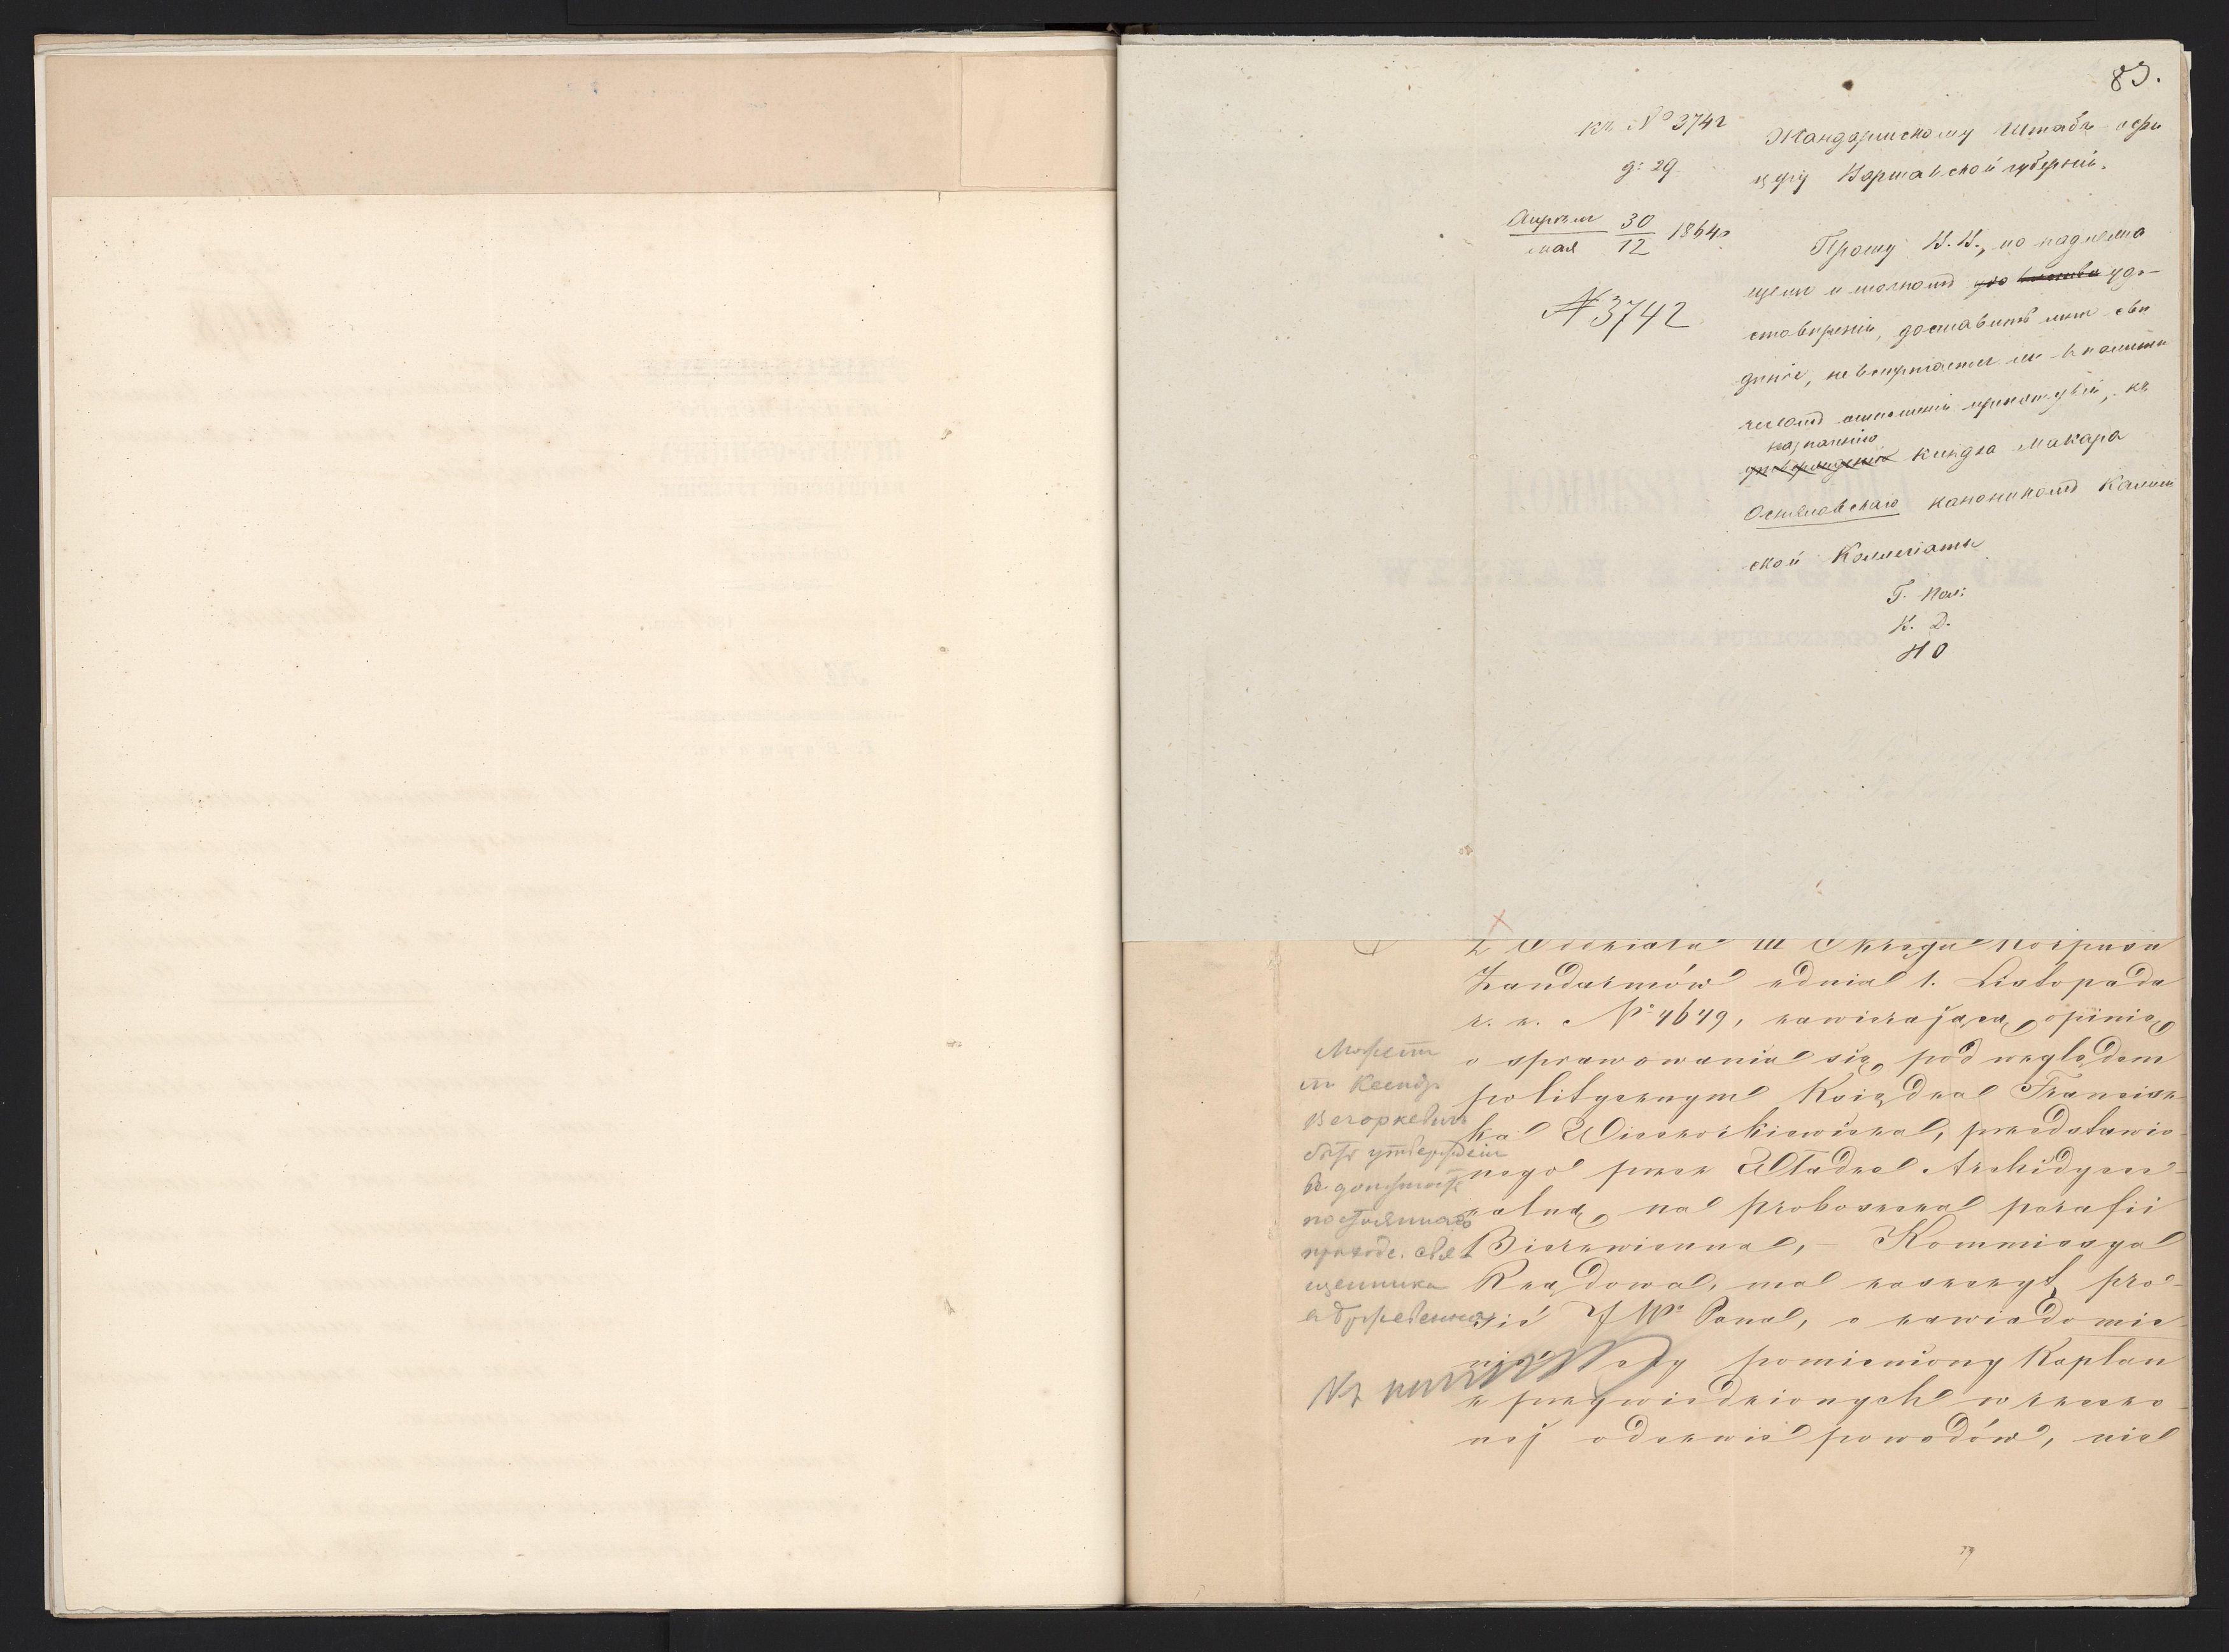 83.
къ № 3742
д: 29
Апрѣля 30
мая 12 1864 г
№ 3742
Жандармскому Штабъ-офи
церу Варшавской губерніи.
Прошу В. В., по надлежа
щемъ и точномъ удо-
стовѣреніи, доставить мнѣ свѣ
дѣніе, не встрѣчается ли въ полити
ческомъ отношеніи препятствій, къ
назначенію
утвержденію ксендза Макара
каноникомъ Калиш
ской Коллегіаты
Г. Пол:
К. Д.
НО
Z Oddziału III Okręgu Korpusu
Żandarmów z dnia 1. Listopada
r. z. № 4649, zawierającą opinię
o sprawowaniu się pod względem
politycznym Księdza Francisz-
ka Wieczorkiewicza, przedstawio-
nego przez Władzę Archidyece-
zalną na proboszcza parafii
Bierzwienna, – Kommissya
Rządowa, ma zaszczyt pro-
sić JW Pana, o zawiadomie-
nie czy pomieniony Kapłan
z przywiedzionych w rzeczo-
nej odezwie powodów, nie
Можетъ
ли Ксендзъ
быть утвержденъ
въ должности
постояннаго
приходс. свя
щенника